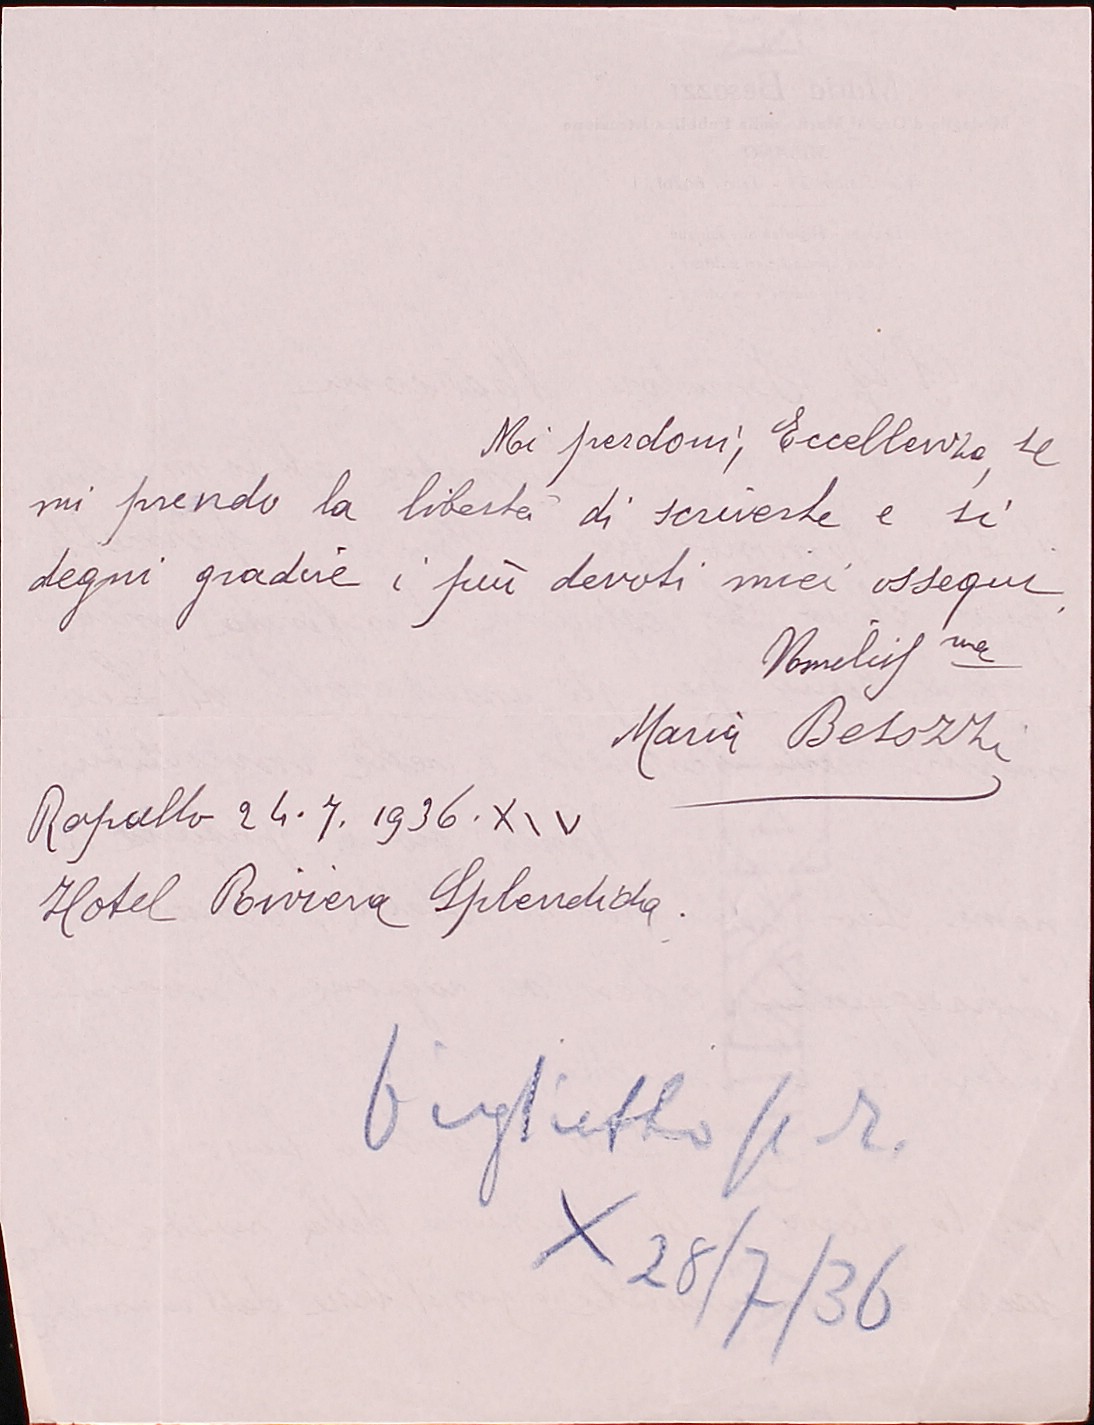 Mi perdoni, Eccellenza, se
mi prendo la libertà di scriverle e si
degni gradire i più devoti miei ossequi.
Umilis ma
Maria Besozzi
Rapallo 24.7.1936.XIV
Hotel Riviera Splendida.
biglietto p r.
X 28/7/36